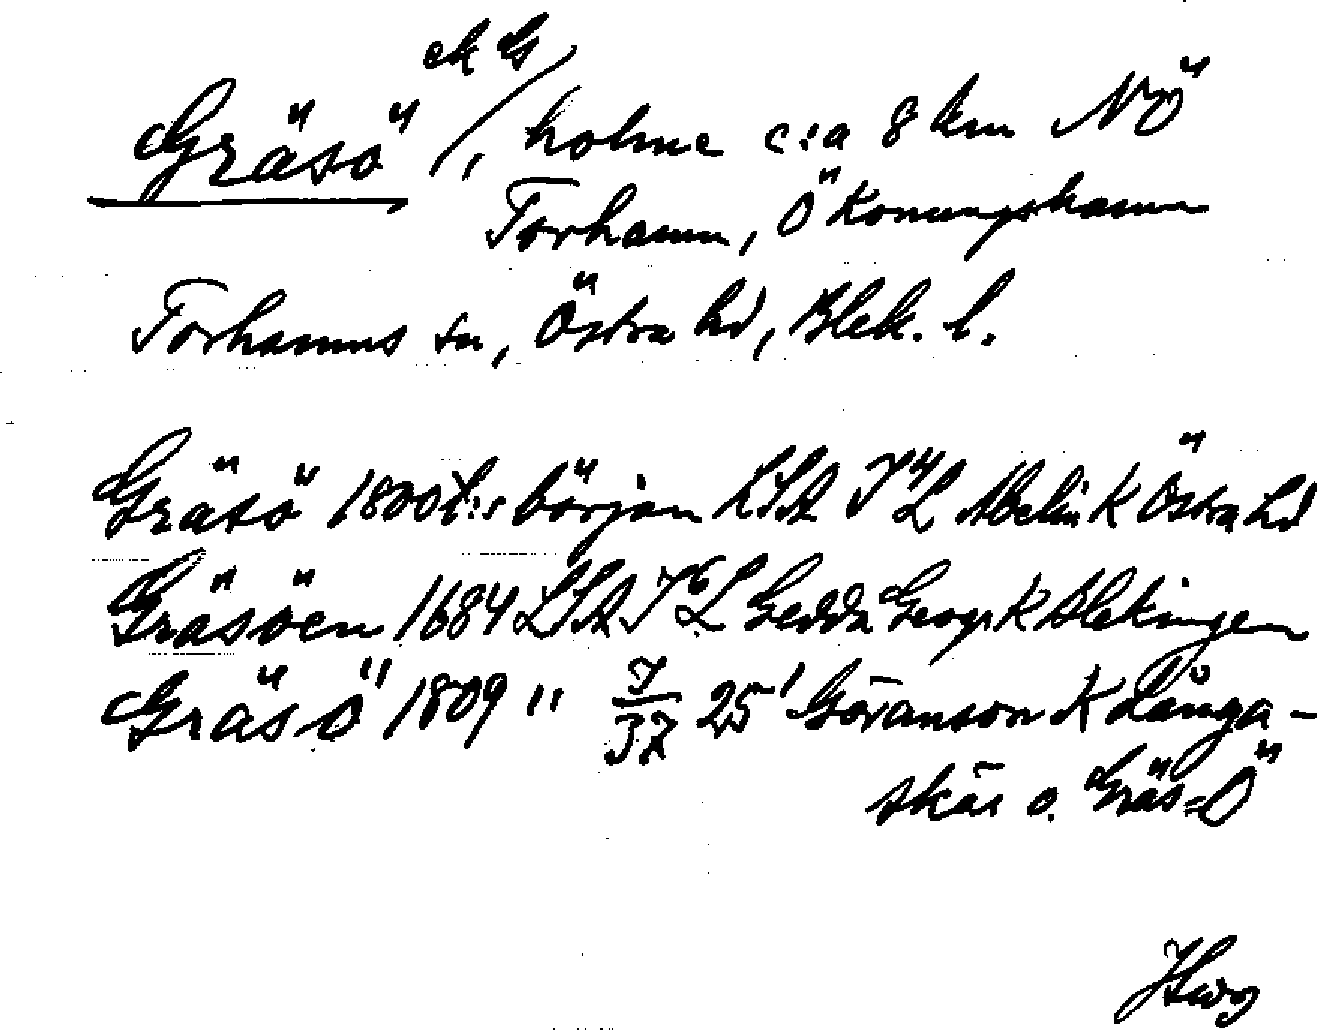 ek G
Gräsö /, holme c:a 8 km NÖ
Torhamn, Ö Konungshamn
Torhamns sn, Östra hd, Blek. l.
Gräsö 1800t:s början LSA Abelin K Östra hd
Gräsöen 1684 LSA Gedda Geogr K Blekingen
Gräsö 1809 " J/37 25 Göranson K Långa-
skär o. Gräs=Ö